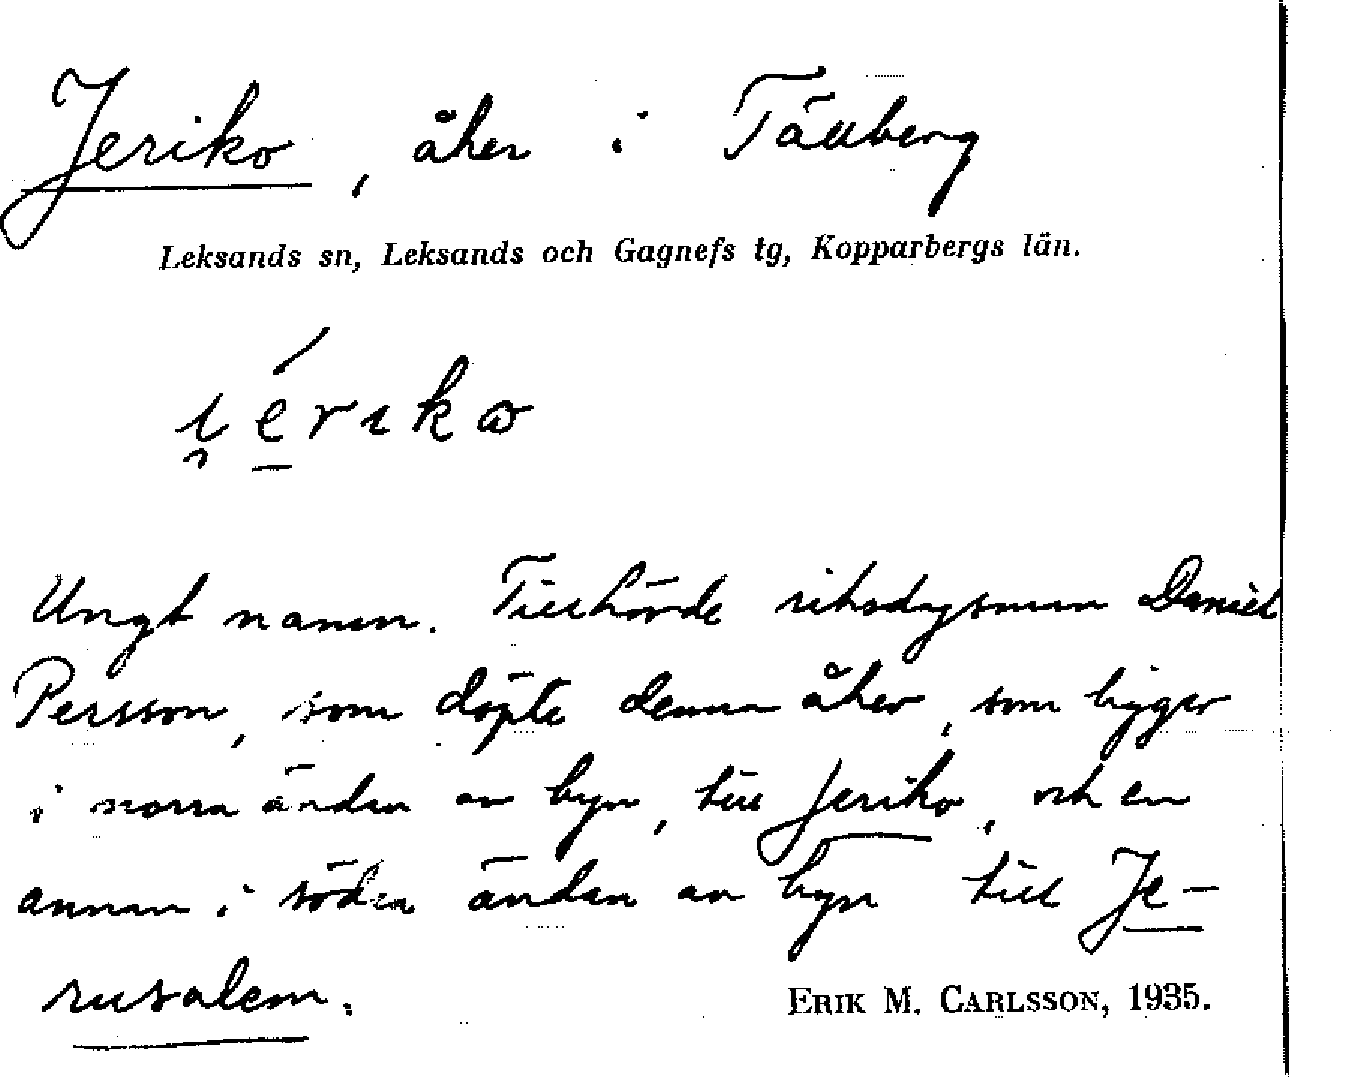 Jeriko, åker i Tällberg
Leksands sn, Leksands och Gagnefs tg, Kopparbergs län.
i̯é̠rıkω
Ungt namn. Tillhörde riksdagsman Daniel
Persson, som döpte denna åker, som ligger
i norra ändan av byn, till Jeriko, och en
annan i södra ändan av byn till Je-
rusalem.
ERIK M. CARLSSON, 1935.